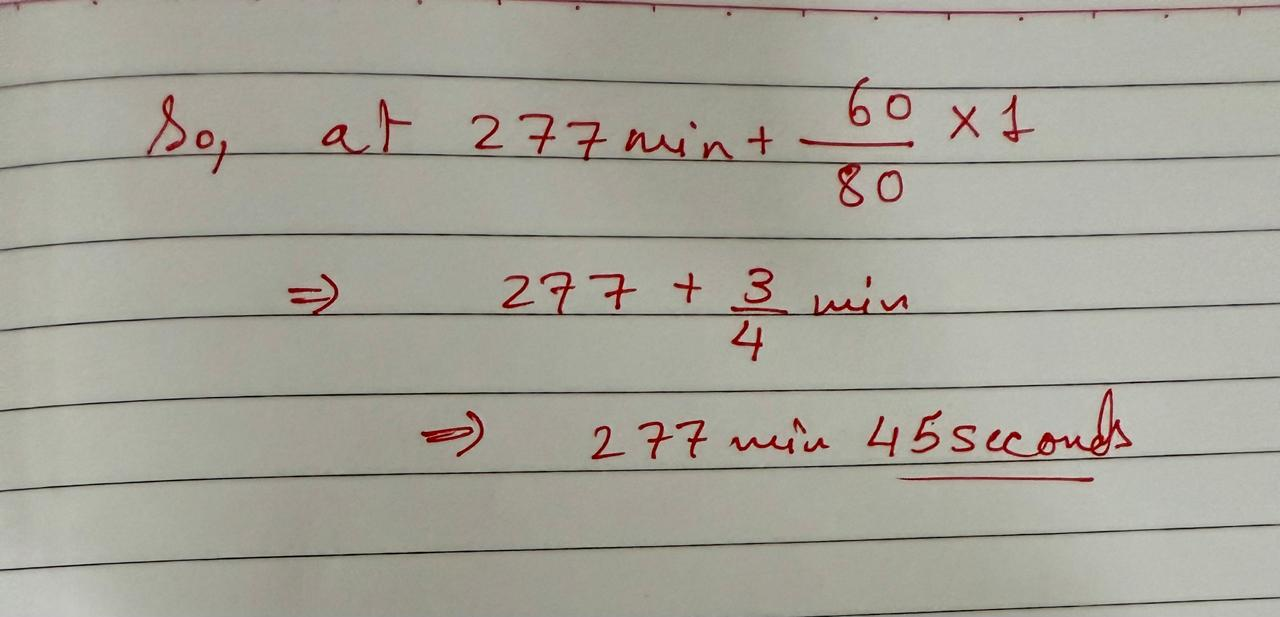 So, at 277 min + 60/80 × 1
⇒ 277 + 3/4 min
⇒ 277 min 45 seconds